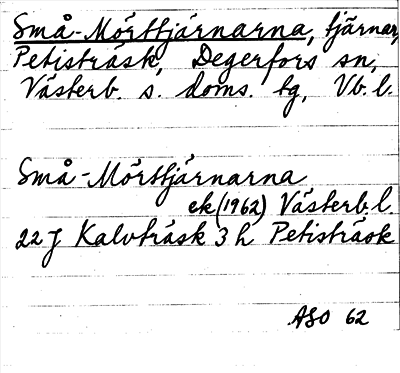 Små-Mörttjärnarna, tjärnar,
Petisträsk, Degerfors sn,
Västerb. s. doms. tg, Vb. l.
Små-Mörttjärnarna
ek (1962) Västerb. l.
22 J Kalvträsk 3 h Petisträsk
ASO 62